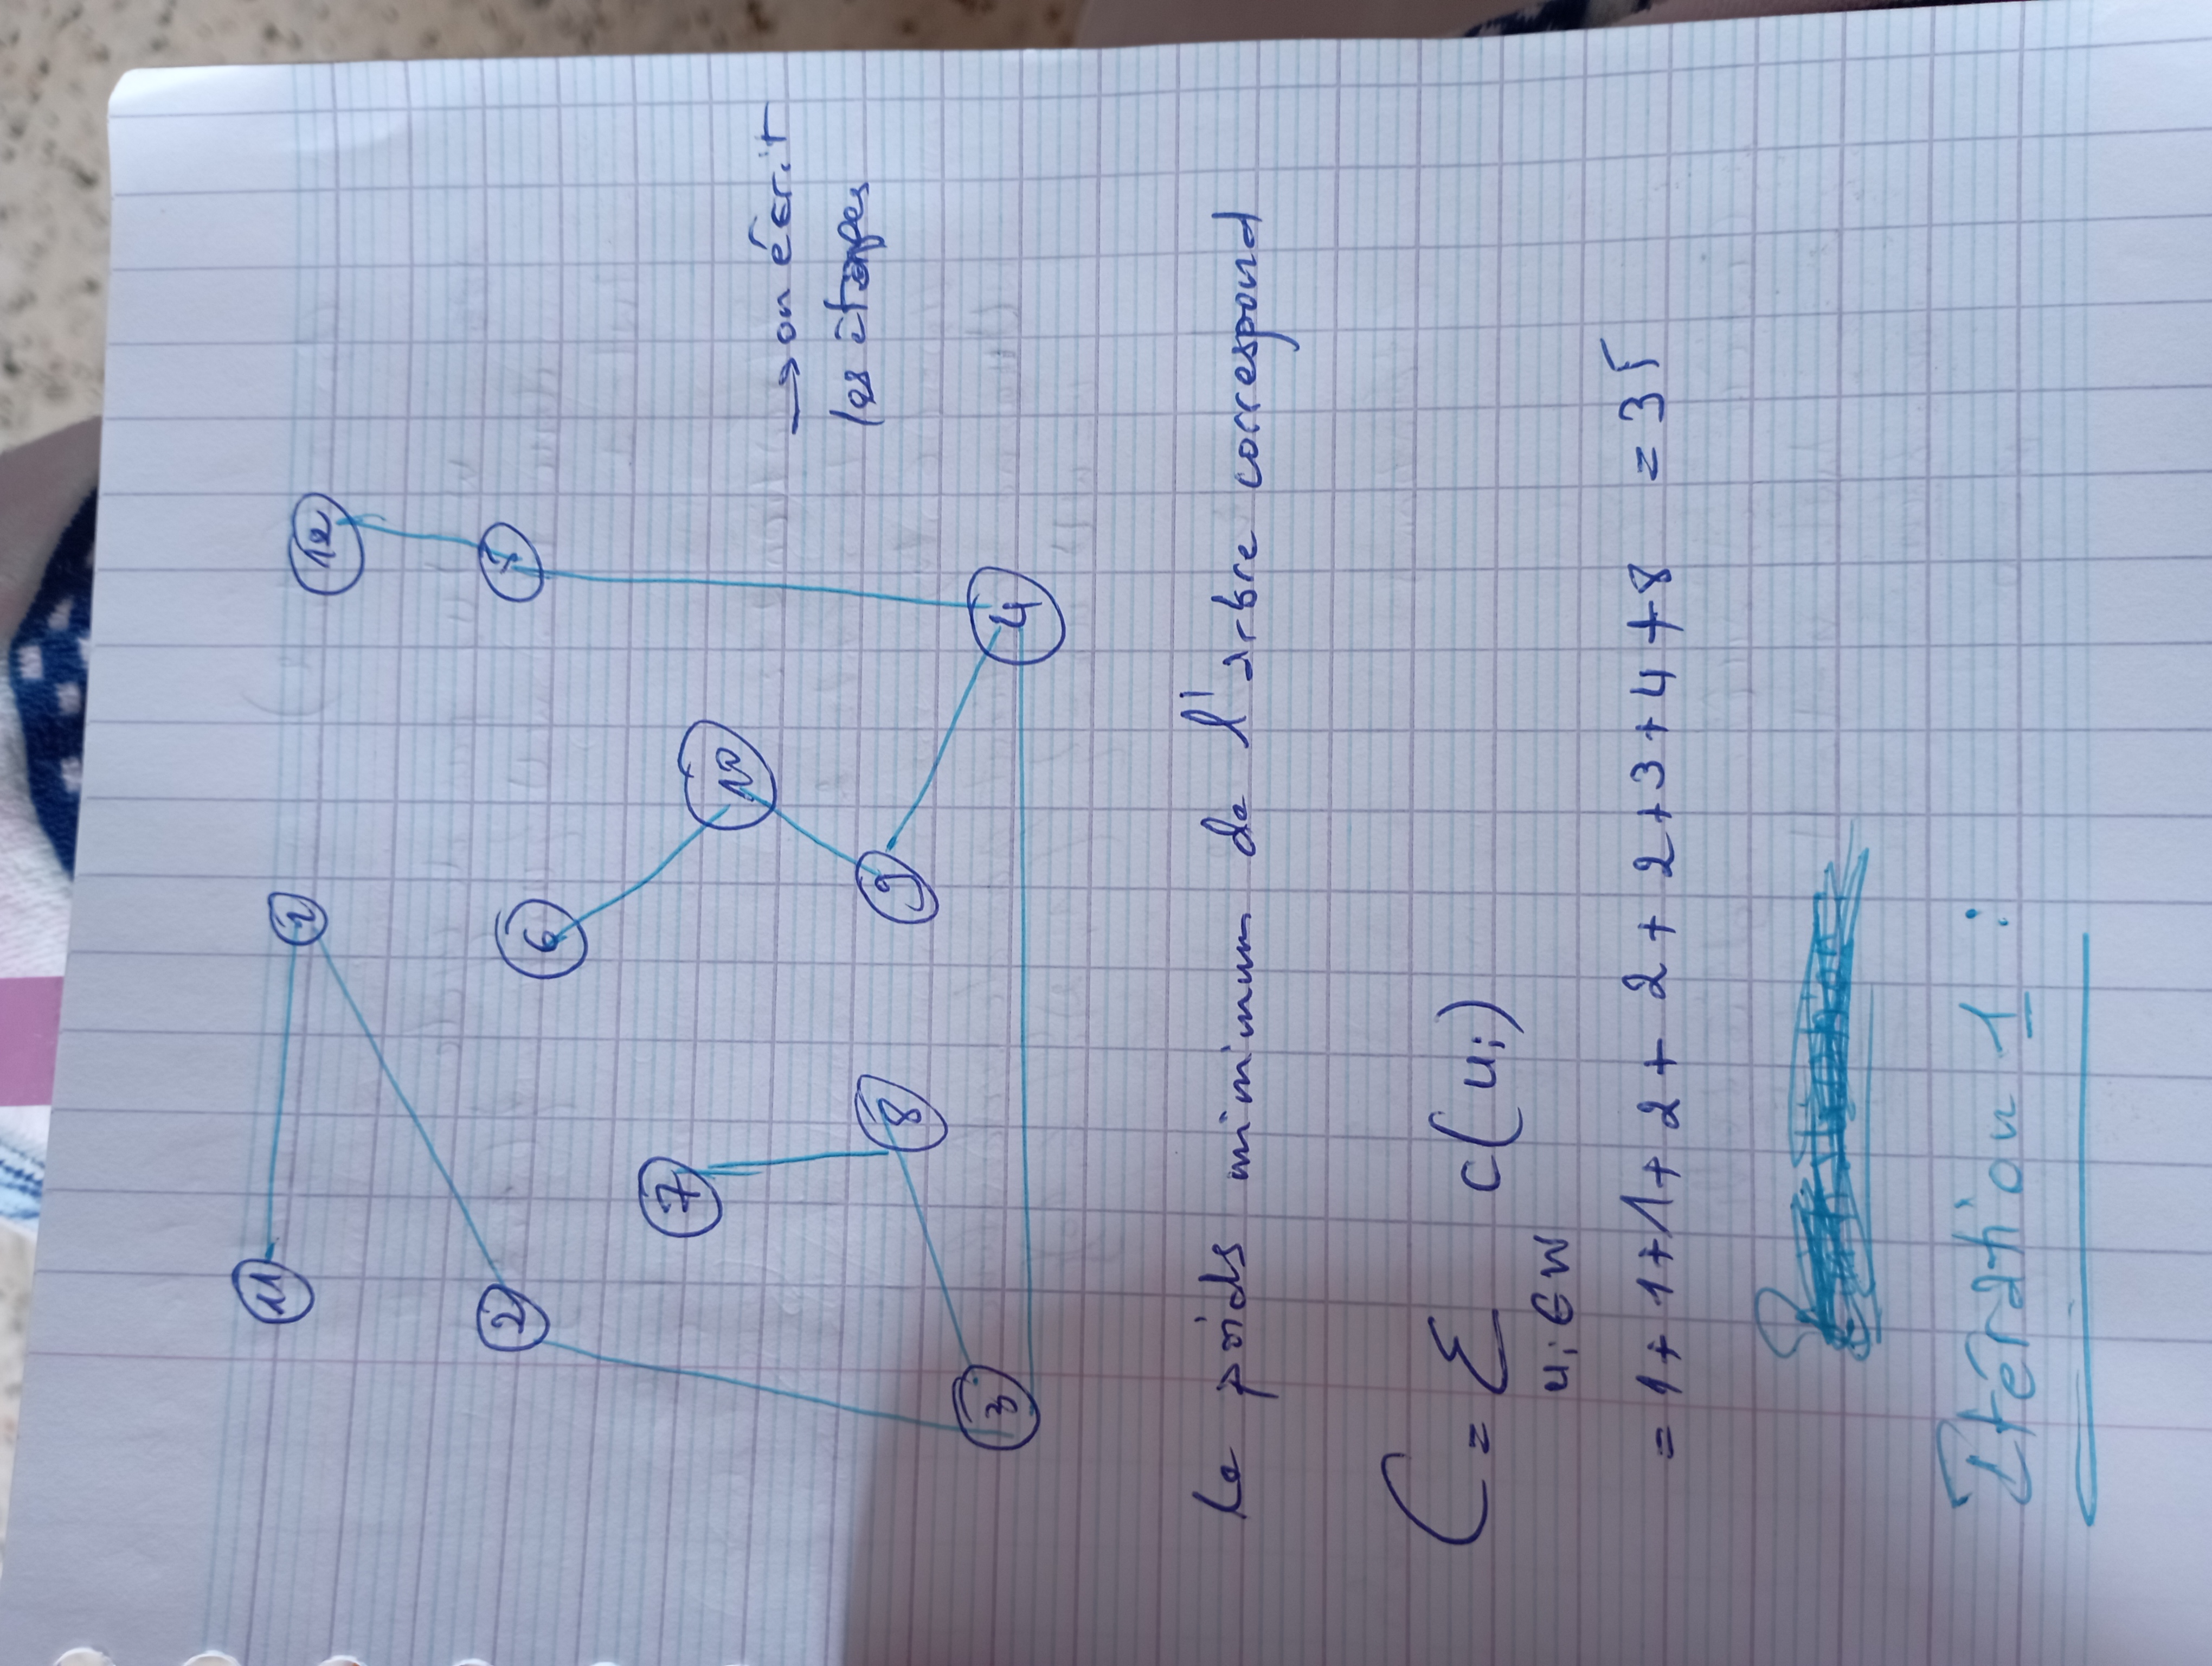 11
1
12
2
6
5
7
10
→ on écrit
les étapes
8
9
3
4
Le poids minimum de l'arbre correspond
C = Σ c(ui)
ui ∈ W
= 1 + 1 + 1 + 2 + 2 + 2 + 3 + 4 + 8 = 35
Itération 1 :